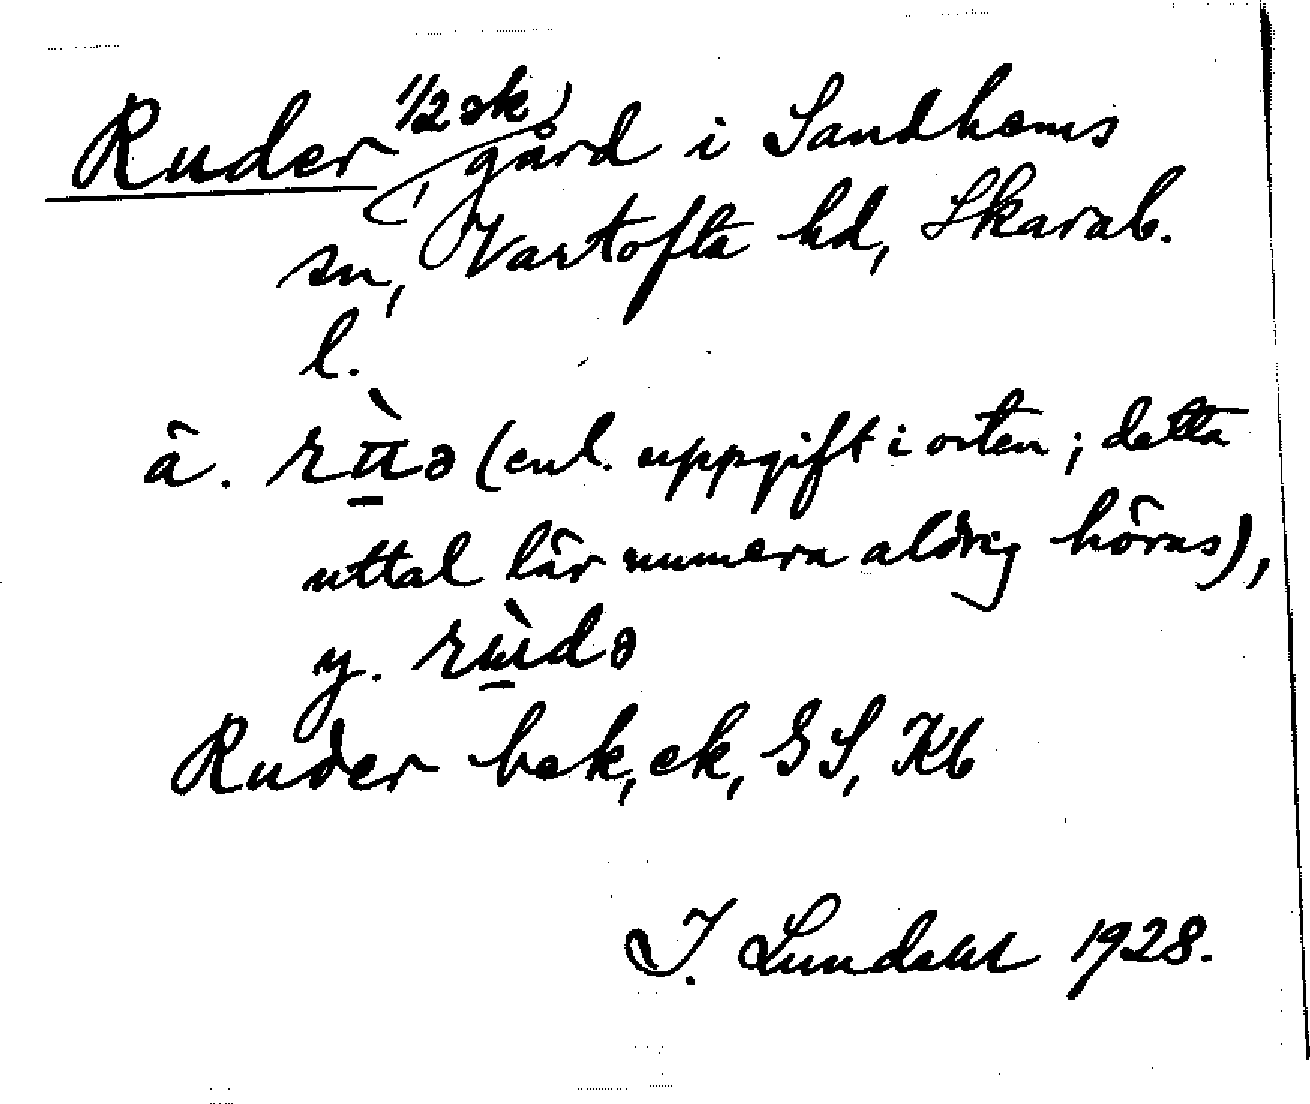 Ruder, 1/2 sk, gård i Sandhems
sn, Vartofta hd, Skarab.
l.
ä. rùə (enl. uppgift i orten; detta
uttal lär numera aldrig höras),
y. rùdə
Ruder bok, ek, GS, Kb
J. Lundahl 1928.